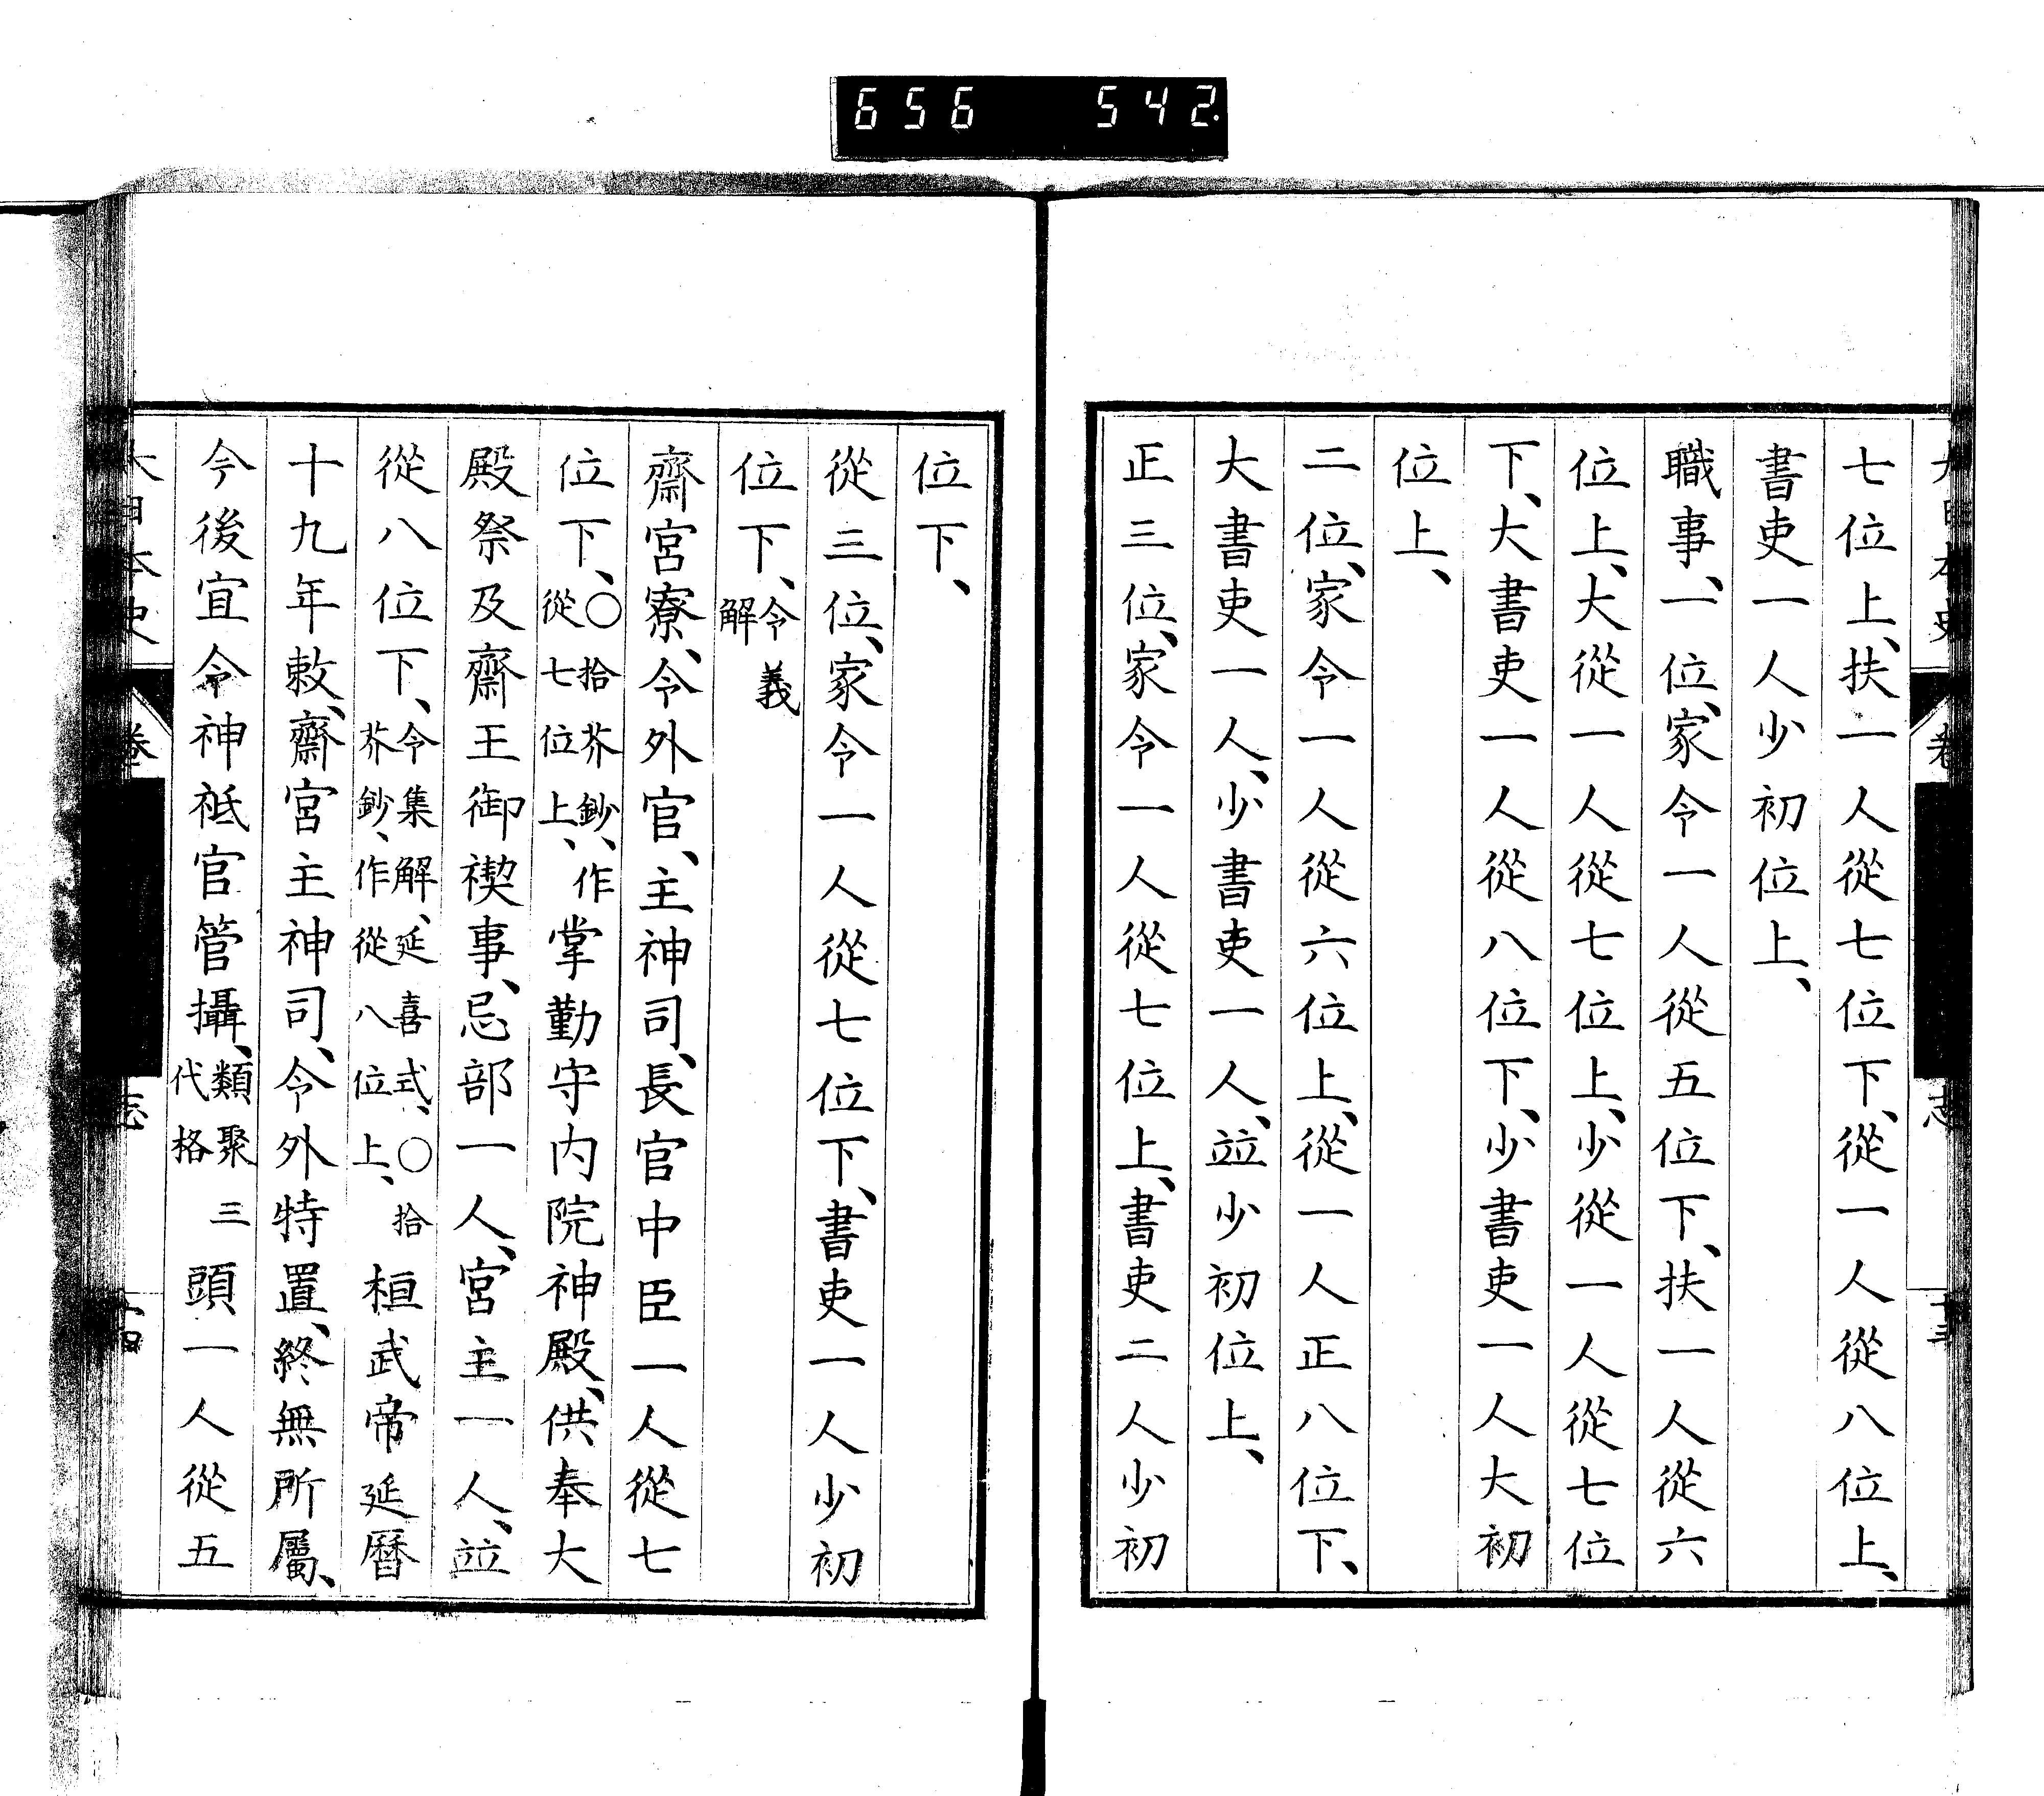 656 542
七位上、扶一人從七位下、從一人從八位上、
書吏一人少初位上、
職事、一位、家令一人從五位下、扶一人從六
位上、大從一人從七位上、少從一人從七位
下、大書吏一人從八位下、少書吏一人大初
位上、
二位、家令一人從六位上、從一人正八位下、
大書吏一人、少書吏一人、竝少初位上、
正三位、家令一人從七位上、書吏二人少初
位下、
從三位、家令一人從七位下、書吏一人少初
位下、令義解
齋宮寮、令外官、主神司、長官中臣一人從七
位下、○拾芥鈔、作從七位上、掌勤守内院神殿、供奉大
殿祭及齋王御禊事、忌部一人、宮主一人、竝
從八位下、令集解、延喜式、○拾芥鈔、作從八位上、桓武帝延曆
十九年敕、齋宮主神司、令外特置、終無所屬、
今後宜令神祇官管攝、類聚三代格頭一人從五
大日本史 卷 志